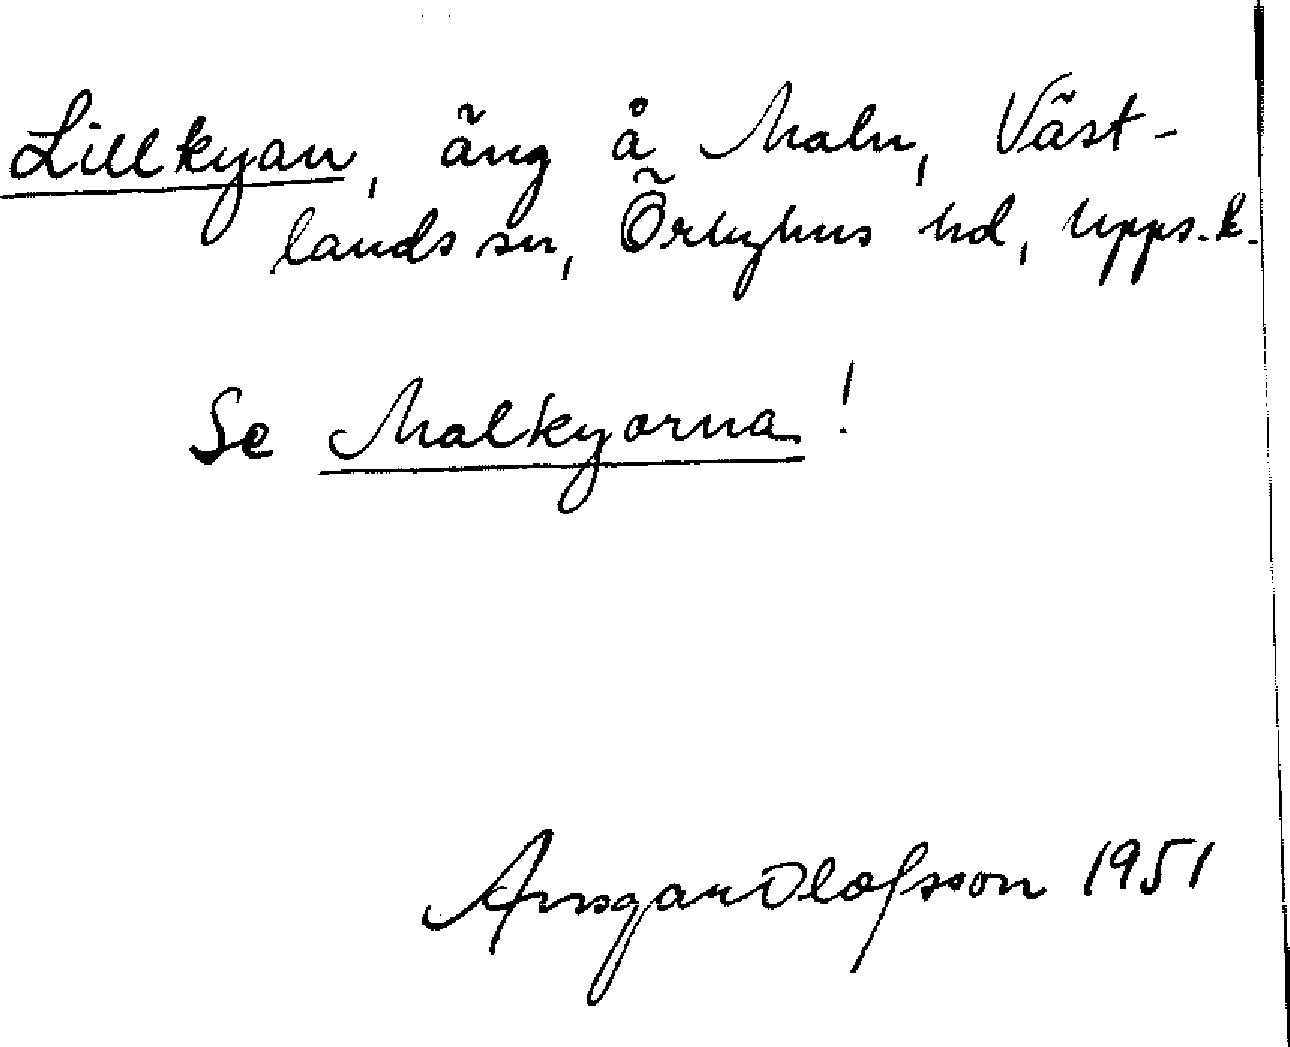 Lillkyan, äng å Maln, Väst-
lands sn, Örbyhus hd, Upps.l.
Se Malkyorna!
Ansgar Olofsson 1951